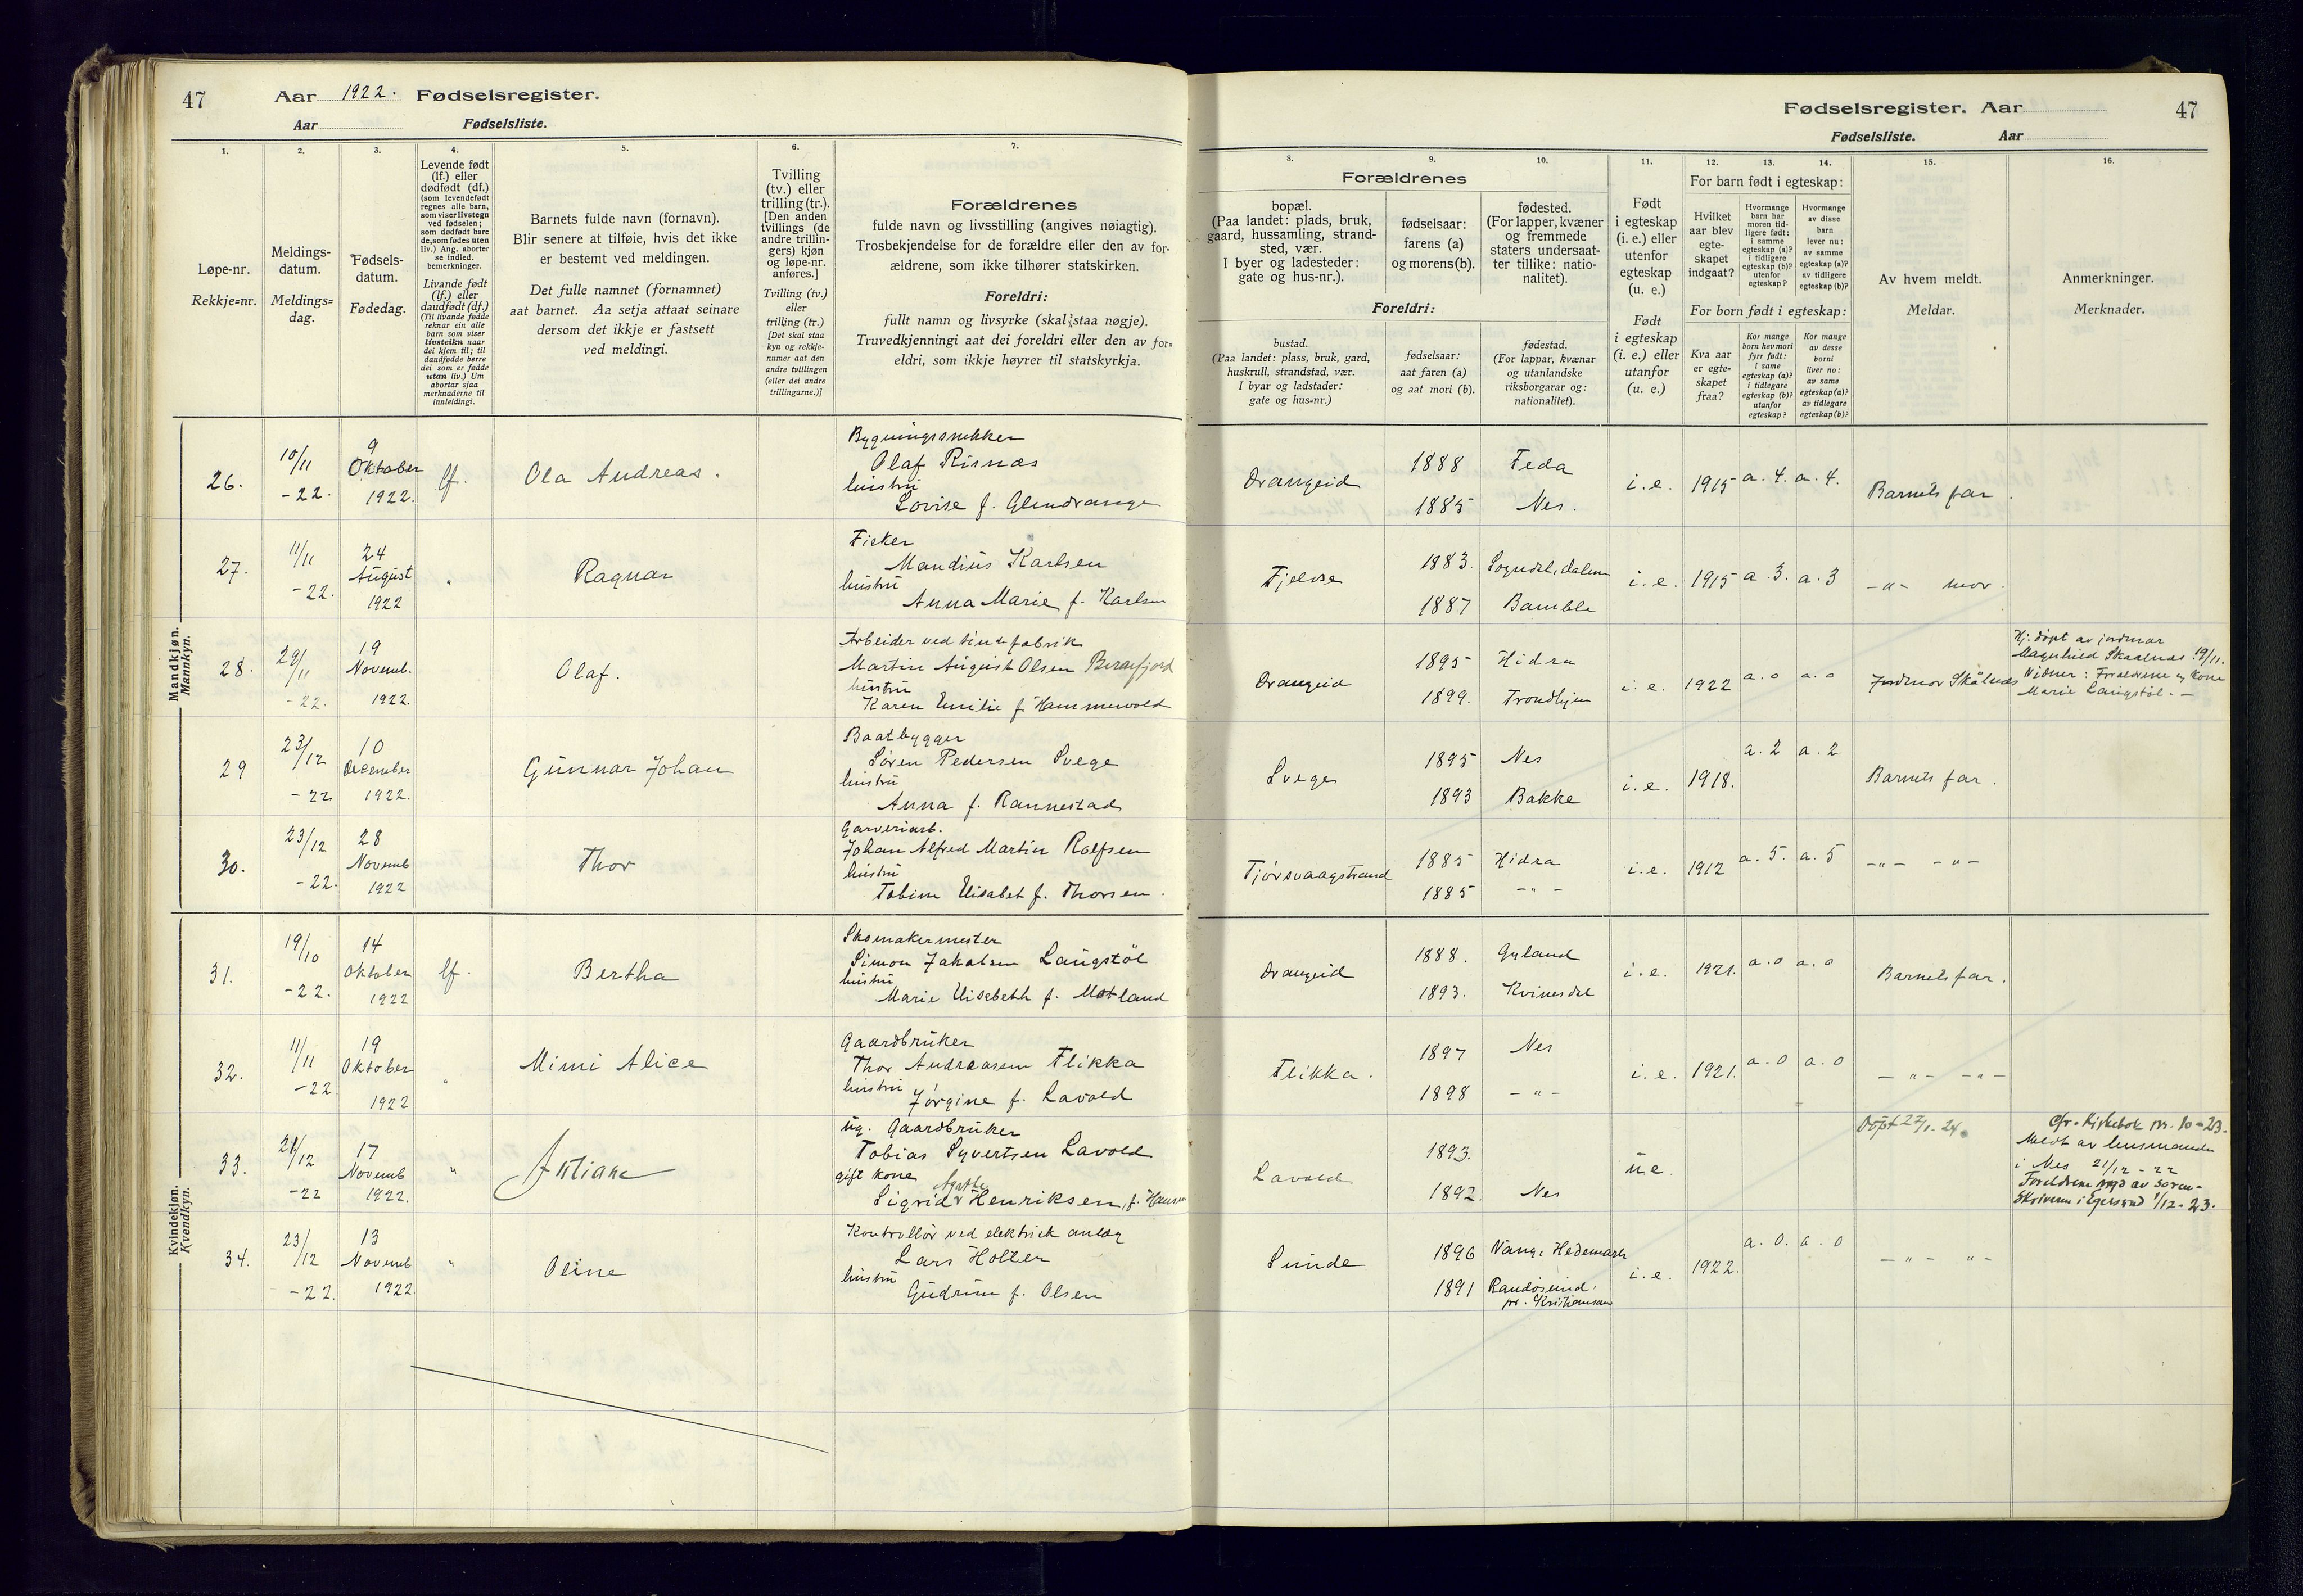 47
Aar 1922. Fødselsregister.
Aar Fødselsliste.
1.
2.
3.
4.
5.
6.
7.
Løpe-nr.
Rekkje=nr.
Meldings-
datum.
Meldings=
dag.
Fødsels-
datum.
Fødedag.
Levende født
(lf.) eller
dødfødt (df.)
(som levendefødt
regnes alle barn,
som viser livstegn
ved fødselen;
som dødfødt bare
de, som fødes uten
liv.) Ang. aborter
se indled.
bemerkninger.
Livande født
(lf.) eller
daudfødt (df.)
(Til livande fødde
reknar ein alle
barn som viser
livsteikn naar
dei kjem til; til
daudfødde berre
dei som er fødde
utan liv.) Um
abortar sjaa
merknaderne til
innleidingi.
Barnets fulde navn (fornavn).
Blir senere at tilføie, hvis det ikke
er bestemt ved meldingen.
Det fulle namnet (fornamnet)
aat barnet. Aa setja attaat seinare
dersom det ikkje er fastsett
ved meldingi.
Tvilling
(tv.) eller
trilling (tr.).
[Den anden
tvillings (de
andre trillin-
gers) kjøn
og løpe-nr.
anføres.]
Tvilling (tv.)
eller
trilling (tr.)
[Det skal staa
kyn og rekkje-
numer aat den
andre tvillingen
(eller dei andre
trillingarne.)]
Forældrenes
fulde navn og livsstilling (angives nøiagtig).
Trosbekjendelse for de forældre eller den av for-
ældrene, som ikke tilhører statskirken.
Foreldri:
fullt namn og livsyrke (skal staa nøgje).
Truvedkjenningi aat dei foreldri eller den av for=
eldri, som ikkje høyrer til statskyrkja.
Mandkjøn.
Mannkyn.
26.
10/11
-22.
9
Oktober
1922.
lf.
Ola Andreas.
Bygningssnekker
Olaf Risnæs
hustru
Lovise f. Glendrange
27.
11/11
-22.
24
August
1922
"
Ragnar
Fisker
Mandius Karlsen
hustru
Anna Marie f. Karlsen
28.
29/11
-22.
19
Novemb.
1922.
Olaf.
Arbeider ved
Martin August Olsen
hustru
Karen Emilie f. Hammervold
29
23/12
-22
10
December
1922.
Gunnar Johan
Baatbygger
Søren Pedersen Svege
hustru
Anna f. Rannestad
30.
23/12
-22.
28
Novemb
1922
Thor
Garveriarb.
Johan Alfred Martin Rolfsen
hustru
Tobine Elisabet f. Thorsen.
Kvindekjøn.
Kvendkyn.
31.
19/10
-22.
14
Oktober
1922
lf.
Bertha
Skomakermester
Simon Jakobsen Langstøl
hustru
Marie Elisabeth f. Motland
32.
11/11
-22.
19
Oktober
1922
"
Mimi Alice
Gaardbruker
Thor Andreasen Flikka
hustru
Jørgine f. Lavold
33.
21/12
-22
17
Novemb
1922.
"
Juliane
ug. Gaardbruker
Tobias Syvertsen Lavold
gift kone
Sigrid Agathe Henriksen, f. Hansen
34.
23/12
-22.
13
Novemb
1922.
"
Oline
Kontrollør ved elektrisk anlæg
Lars Holten
hustru
Gudrun f. Olsen
Fødselsregister. Aar
47
Fødselsliste. Aar
8.
9.
10.
11.
12.
13.
14.
15.
16.
Forældrenes
bopæl.
(Paa landet: plads, bruk,
gaard, hussamling, strand-
sted, vær.
I byer og ladesteder:
gate og hus-nr.).
fødselsaar:
farens (a)
og morens (b).
fødested.
(For lapper, kvæner
og fremmede
staters undersaat-
ter tillike: natio-
nalitet).
Foreldri:
bustad.
(Paa landet: plass, bruk, gard,
huskrull, strandstad, vær.
I byar og ladstader:
gate og hus=nr.)
fødselsaar:
aat faren (a)
og aat mori (b).
fødestad.
(For lappar, kvænar
og utanlandske
riksborgarar og:
nationalitet).
Født
i egteskap
(i. e.) eller
utenfor
egteskap
(u. e.)
Født
i egteskap
(i. e.) eller
utanfor
(u. e.)
For barn født i egteskap:
Hvilket
aar blev
egte-
skapet
indgaat?
Hvormange
barn har
moren tid-
ligere født:
i samme
egteskap (a)?
i tidligere
egteskap (b)?
utenfor
egteskap?
Hvormange
av disse
barn
lever nu:
av samme
egteskap (a)?
av tidligere
egteskap (b)?
For born født i egteskap:
Kva aar
er egte=
skapet
fraa?
Kor mange
born hev mori
fyrr født:
i same
egteskap (a)?
i tidlegare
egteskap (b)?
utanfor
egteskap?
Kor mange
av desse
borni
liver no:
av same
egteskap (a)?
av tidlegare
egteskap (b)?
Av hvem meldt.
Meldar.
Anmerkninger.
Merknader.
Drangeid
1888
1885
Feda
Nes.
i. e.
1915
a. 4.
a. 4.
Barnets far.
Fjelse
1883.
1887
Sogndal, Dalene
Bamble
i. e.
1915
a. 3.
a. 3
-"- mor.
Drangeid
1895
1899.
Hidra
Trondhjem
i. e.
1922
a. 0
a. 0
Jordmor Skålnes
Hj: døpt av jordmor
Magnhild Skaalnes 19/11.
Vidner: Foreldrene og kone
Marie Langstøl. -
Svege
1895
1893
Nes
Bakke
i. e.
1918.
a. 2
a. 2
Barnets far.
Tjørsvaagstrand
1885
1885
Hidra
-"-
i. e.
1912
a. 5.
a. 5
-"- -"-
Drangeid
1888.
1893.
Gyland
Kvinesdal
i. e.
1921.
a. 0
a. 0
Barnets far.
Flikka.
1897
1898
Nes
-"-
i. e.
1921.
a. 0
a. 0
-"- -"-
Lavold
1893.
1892.
Nes
u.e.
Døpt 27/1. 24.
cfr. Kirkebok nr. 10-23.
Meldt av lensmanden
i Nes 21/12-22
Foreldrene av soren-
skriveren i Egersund 1/12-23.
Sunde
1896
1891
Vang, Hedemark
Randøsund.
pr. Kristiansand
i. e.
1922.
a. 0.
a. 0
-"- "-